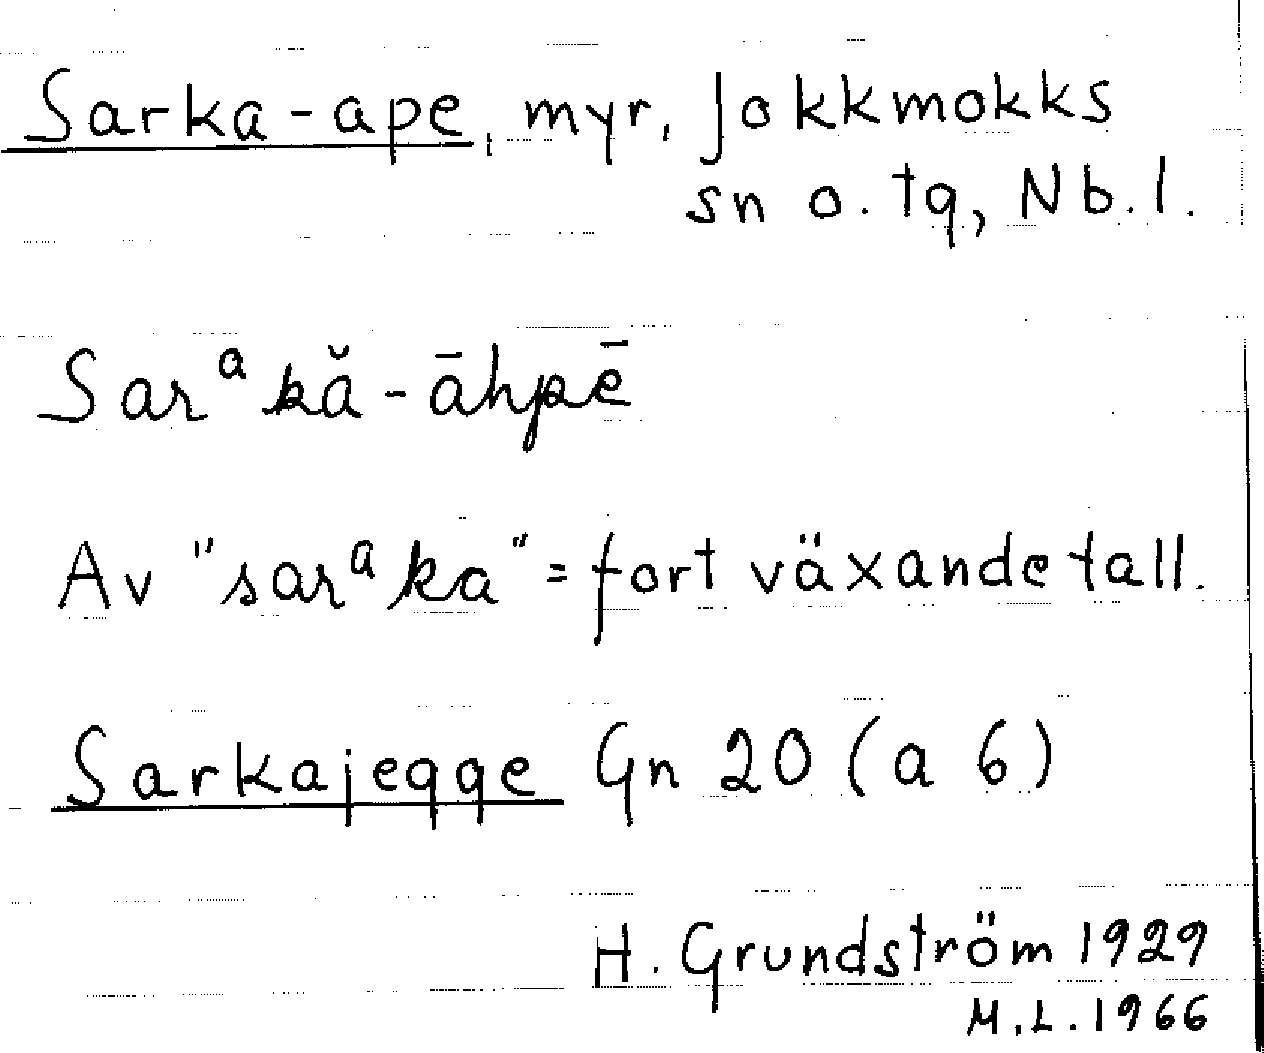 Sarka-ape, myr, Jokkmokks
sn o. tg, Nb.l.
Sarᵃkǎ-āhpē
Av "sarᵃka" = fort växande tall.
Sarkajegge Gn 20 (a 6)
H. Grundström 1929
M.L. 1966